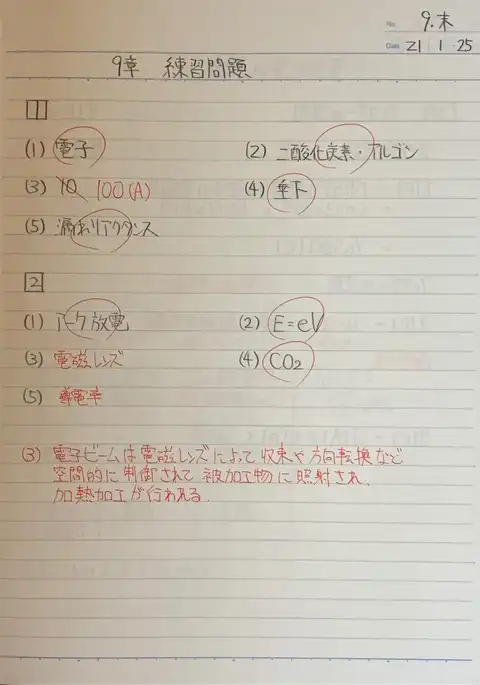 No. 9.末
Date 21 1 25
9章 練習問題
1
(1) 電子 (2) 二酸化炭素・アルゴン
(3) 10 100(A) (4) 垂下
(5) 漏れリアクタンス
2
(1) アーク放電 (2) E=eV
(3) 電磁レンズ (4) CO2
(5) 導電率
(3) 電子ビームは電磁レンズによって収束や方向転換など
空間的に制御されて被加工物に照射され、
加熱加工が行われる。